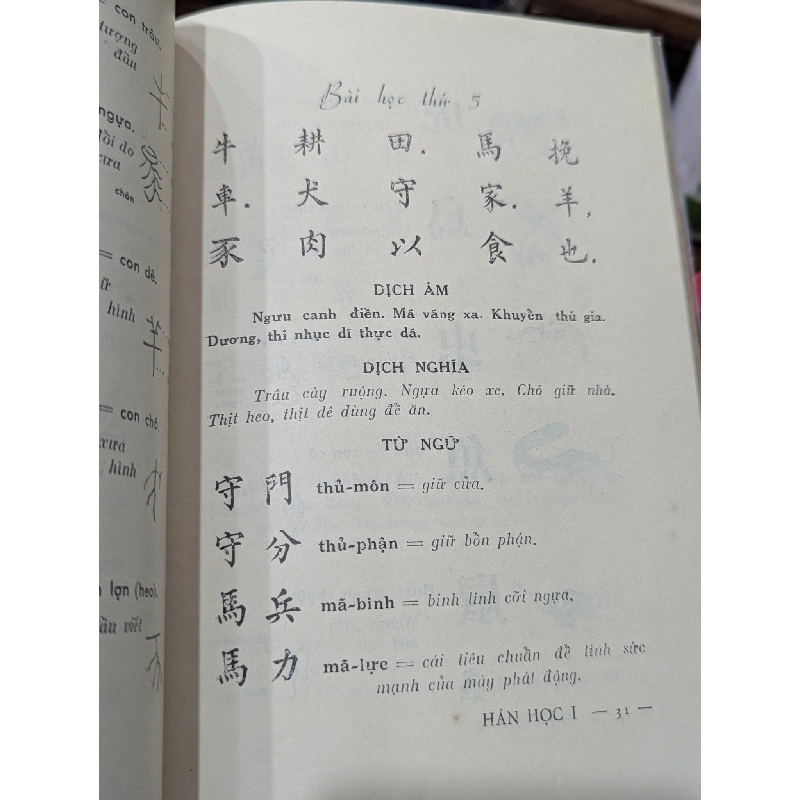 = con trâu.
tượng
đầu
ngựa.
chân
= con dê.
hình
= con chó.
xưa
hình
lợn (heo).
viết
Bài học thứ 5
牛 耕 田. 馬 挽
車. 犬 守 家. 羊,
豕 肉 以 食 也.
DỊCH ÂM
Ngưu canh điền. Mã vãng xa. Khuyển thủ gia.
Dương, thỉ nhục dĩ thực dã.
DỊCH NGHĨA
Trâu cày ruộng. Ngựa kéo xe. Chó giữ nhà.
Thịt heo, thịt dê dùng để ăn.
TỪ NGỮ
守 門 thủ-môn = giữ cửa.
守 分 thủ-phận = giữ bổn phận.
馬 兵 mã-binh = binh lính cỡi ngựa.
馬 力 mã-lực = cái tiêu chuẩn để tính sức
mạnh của máy phát động.
HÁN HỌC I — 31 —